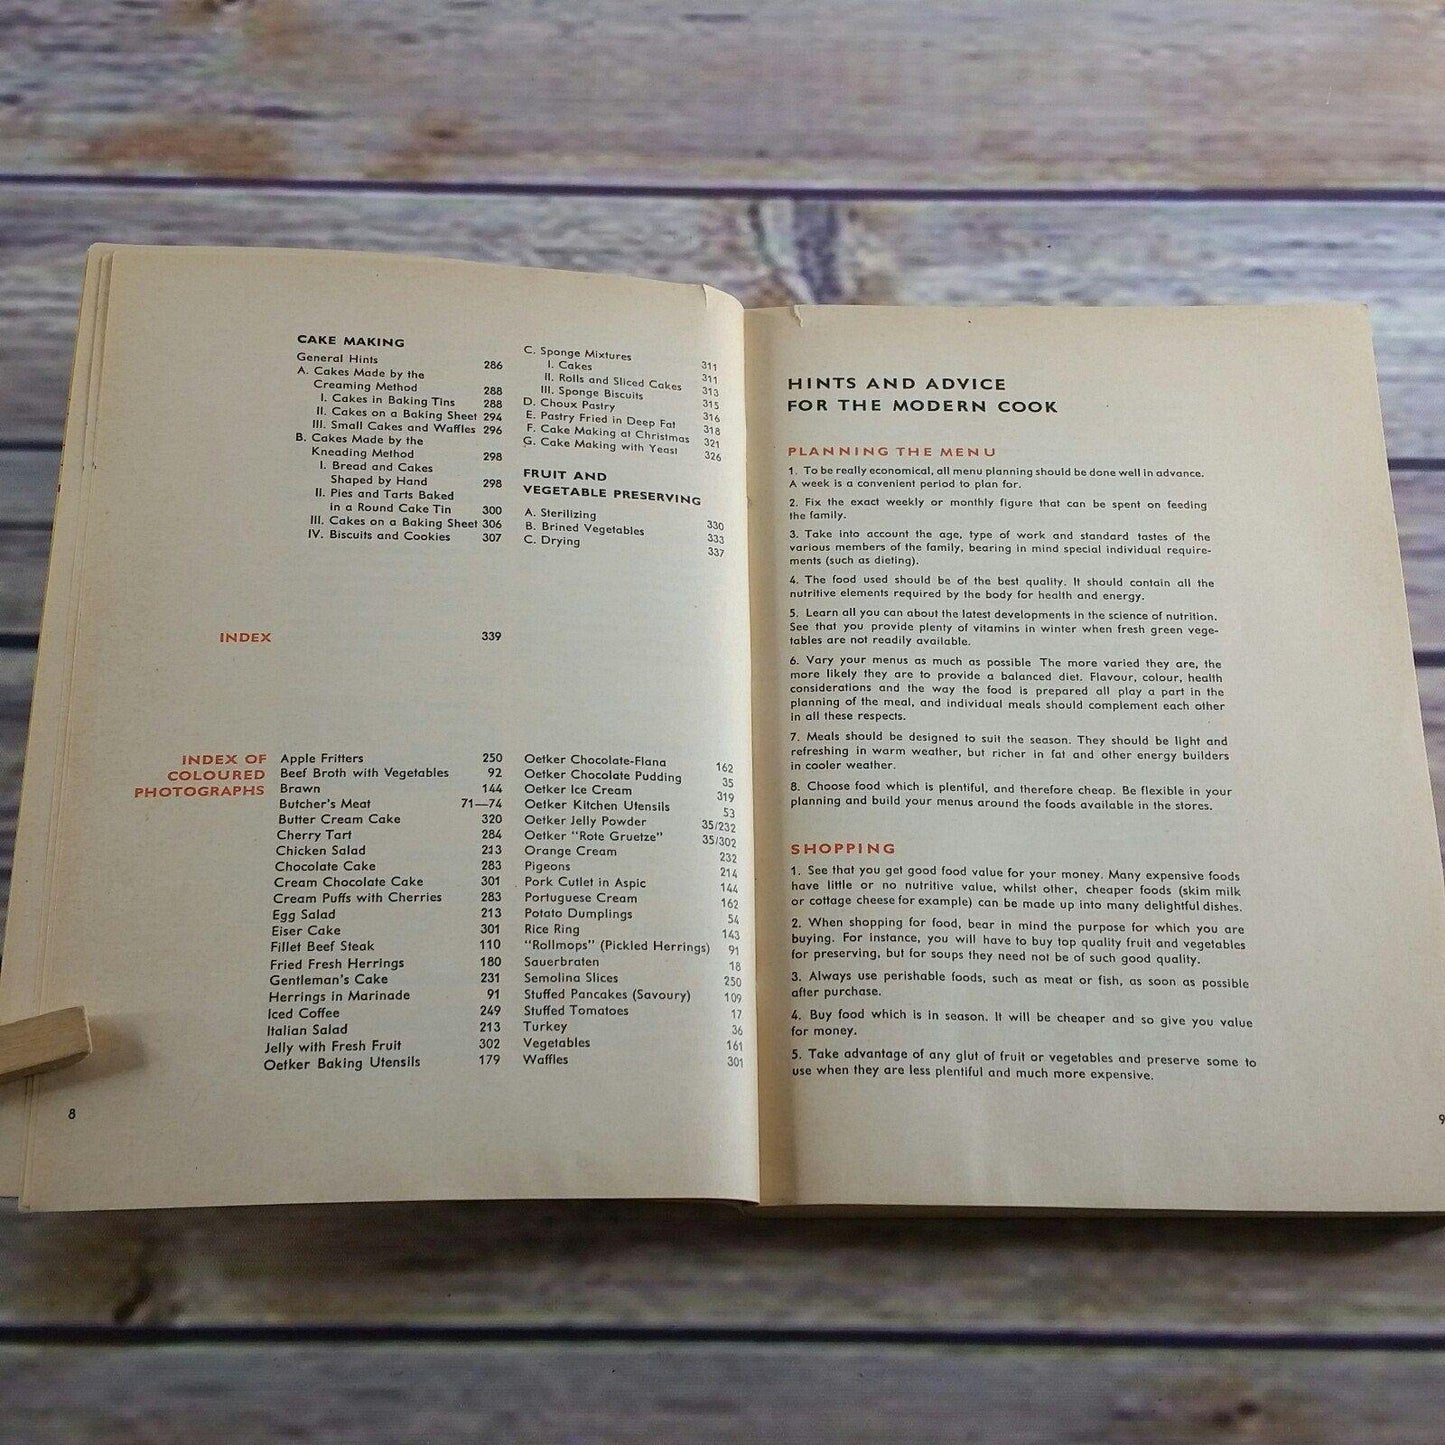 CAKE MAKING
General Hints 286
A. Cakes Made by the
Creaming Method 288
I. Cakes in Baking Tins 288
II. Cakes on a Baking Sheet 294
III. Small Cakes and Waffles 296
B. Cakes Made by the
Kneading Method 298
I. Bread and Cakes
Shaped by Hand 298
II. Pies and Tarts Baked
in a Round Cake Tin 300
III. Cakes on a Baking Sheet 306
IV. Biscuits and Cookies 307
C. Sponge Mixtures 311
I. Cakes 311
II. Rolls and Sliced Cakes 313
III. Sponge Biscuits 315
D. Choux Pastry 316
E. Pastry Fried in Deep Fat 318
F. Cake Making at Christmas 321
G. Cake Making with Yeast 326
FRUIT AND
VEGETABLE PRESERVING
A. Sterilizing 330
B. Brined Vegetables 333
C. Drying 337
INDEX 339
INDEX OF
COLOURED
PHOTOGRAPHS
Apple Fritters 250
Beef Broth with Vegetables 92
Brawn 144
Butcher's Meat 71—74
Butter Cream Cake 320
Cherry Tart 284
Chicken Salad 213
Chocolate Cake 283
Cream Chocolate Cake 301
Cream Puffs with Cherries 283
Egg Salad 213
Eiser Cake 301
Fillet Beef Steak 110
Fried Fresh Herrings 180
Gentleman's Cake 231
Herrings in Marinade 91
Iced Coffee 249
Italian Salad 213
Jelly with Fresh Fruit 302
Oetker Baking Utensils 179
Oetker Chocolate-Flana 162
Oetker Chocolate Pudding 35
Oetker Ice Cream 319
Oetker Kitchen Utensils 53
Oetker Jelly Powder 35/232
Oetker "Rote Gruetze" 35/302
Orange Cream 232
Pigeons 214
Pork Cutlet in Aspic 144
Portuguese Cream 162
Potato Dumplings 54
Rice Ring 143
"Rollmops" (Pickled Herrings) 91
Sauerbraten 18
Semolina Slices 250
Stuffed Pancakes (Savoury) 109
Stuffed Tomatoes 17
Turkey 36
Vegetables 161
Waffles 301
8
HINTS AND ADVICE
FOR THE MODERN COOK
PLANNING THE MENU
1. To be really economical, all menu planning should be done well in advance.
A week is a convenient period to plan for.
2. Fix the exact weekly or monthly figure that can be spent on feeding
the family.
3. Take into account the age, type of work and standard tastes of the
various members of the family, bearing in mind special individual require-
ments (such as dieting).
4. The food used should be of the best quality. It should contain all the
nutritive elements required by the body for health and energy.
5. Learn all you can about the latest developments in the science of nutrition.
See that you provide plenty of vitamins in winter when fresh green vege-
tables are not readily available.
6. Vary your menus as much as possible The more varied they are, the
more likely they are to provide a balanced diet. Flavour, colour, health
considerations and the way the food is prepared all play a part in the
planning of the meal, and individual meals should complement each other
in all these respects.
7. Meals should be designed to suit the season. They should be light and
refreshing in warm weather, but richer in fat and other energy builders
in cooler weather.
8. Choose food which is plentiful, and therefore cheap. Be flexible in your
planning and build your menus around the foods available in the stores.
SHOPPING
1. See that you get good food value for your money. Many expensive foods
have little or no nutritive value, whilst other, cheaper foods (skim milk
or cottage cheese for example) can be made up into many delightful dishes.
2. When shopping for food, bear in mind the purpose for which you are
buying. For instance, you will have to buy top quality fruit and vegetables
for preserving, but for soups they need not be of such good quality.
3. Always use perishable foods, such as meat or fish, as soon as possible
after purchase.
4. Buy food which is in season. It will be cheaper and so give you value
for money.
5. Take advantage of any glut of fruit or vegetables and preserve some to
use when they are less plentiful and much more expensive.
9